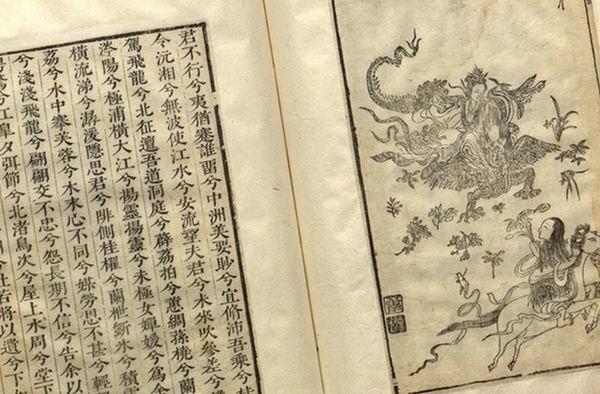 君不行兮夷猶蹇誰畱兮中洲美要眇兮宜脩沛吾乘兮桂
令沅湘兮無波使江水兮安流望夫君兮未來吹參差兮
駕飛龍兮北征邅吾道洞庭兮薜荔拍兮蕙綢蓀橈兮蘭
涔陽兮極浦橫大江兮揚靈揚靈兮未極女嬋媛兮為余
橫流涕兮潺湲隱思君兮陫側桂櫂兮蘭枻斲氷兮積
荔兮水中搴芙蓉兮木末心不同兮媒勞恩不甚兮輕
兮淺淺飛龍兮翩翩交不忠兮怨長期不信兮告余以
兮江皋夕弭節兮北渚鳥次兮屋上水周兮堂下
兮杜若將以遺兮下